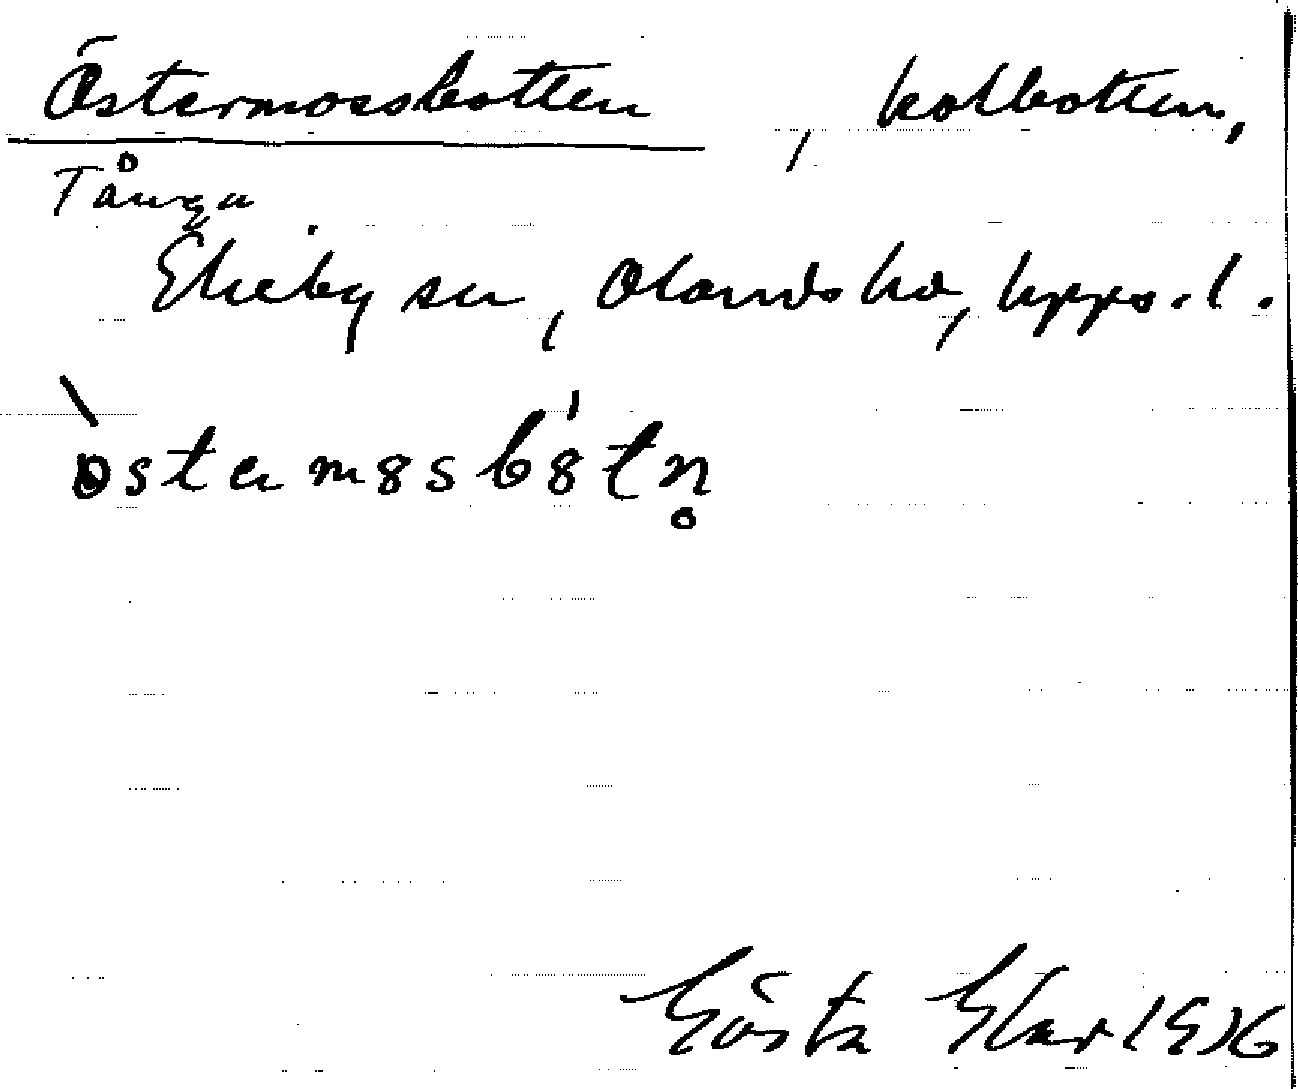 Östermossbotten, kolbotten,
Tånga
Ekeby sn, Olands hd, Upps. l.
òstermȣsbȣ́tn̥
Gösta